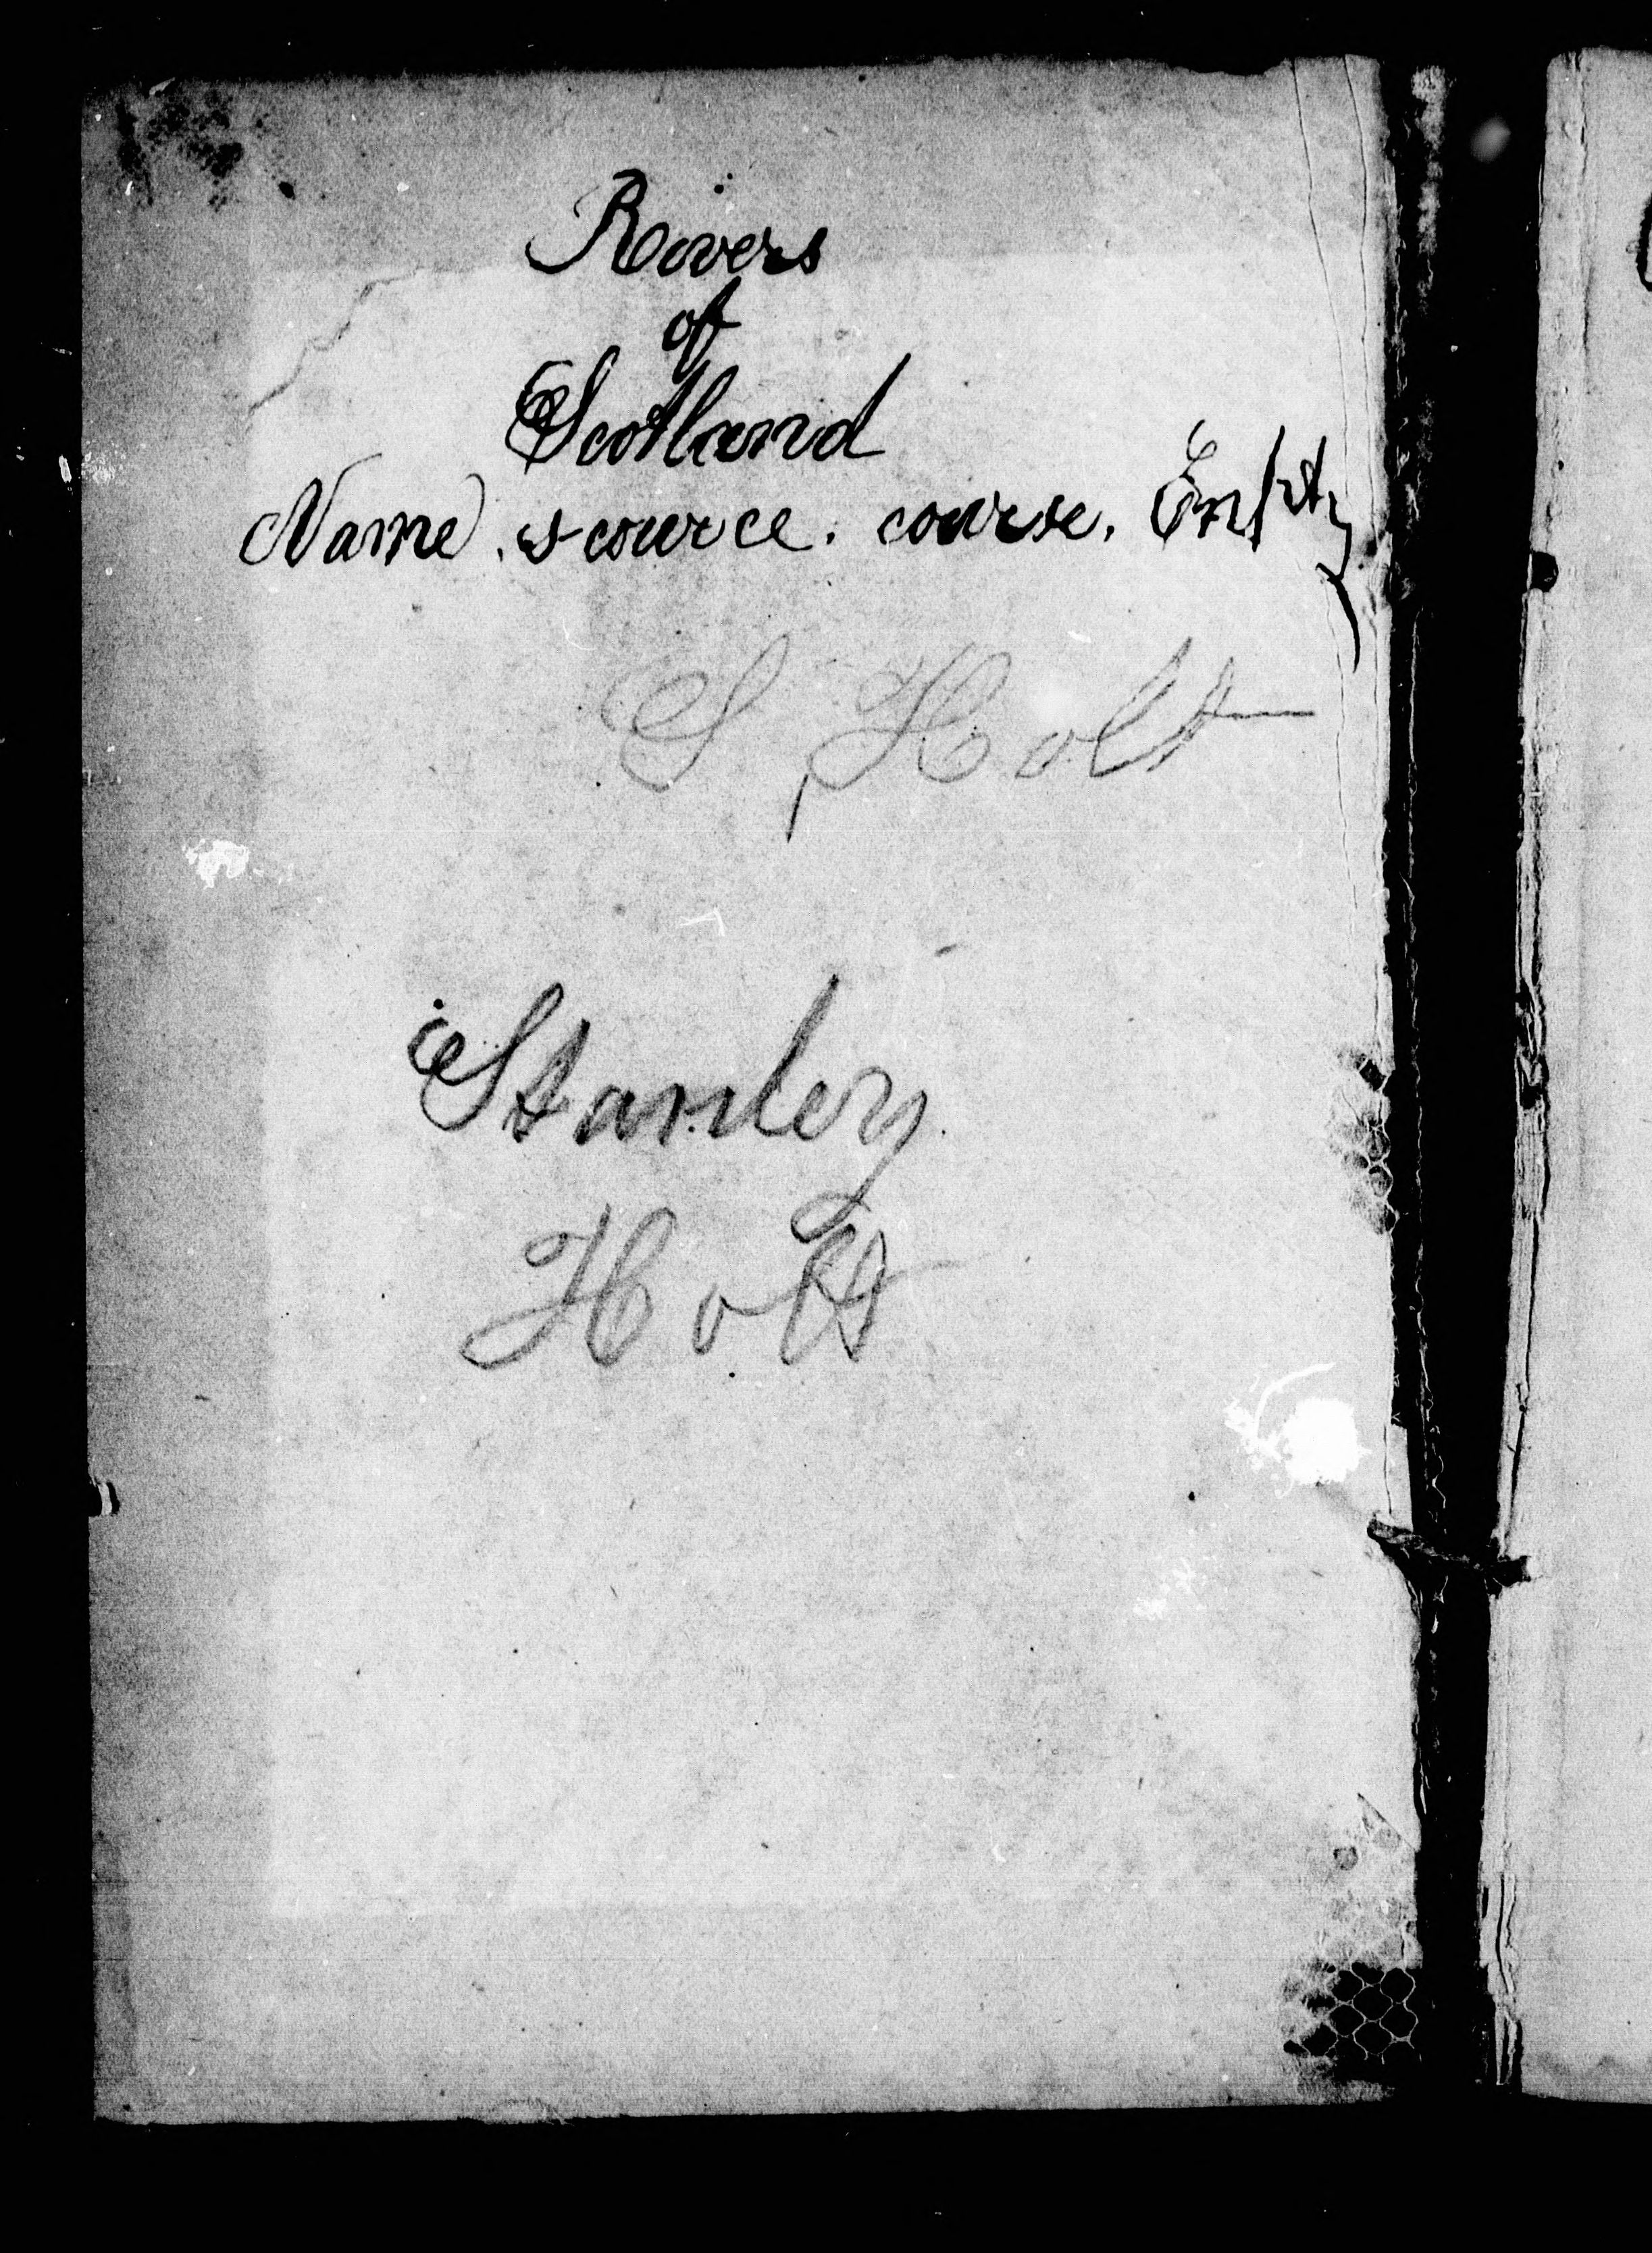 Rivers
of
Scotland
Name. scource. course.
S Holt
Stanley
Holt